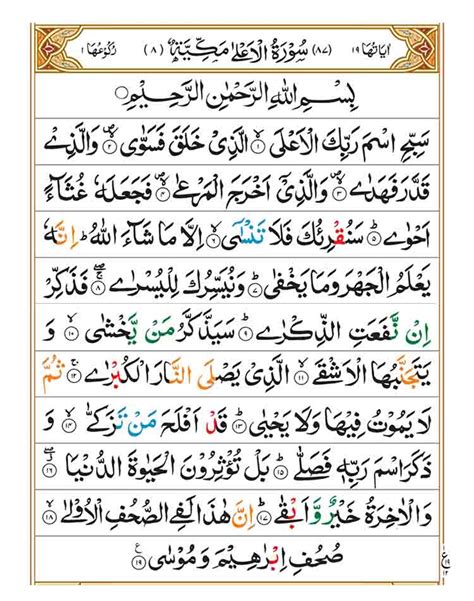 اٰيَاتُهَا ۱۹ (۸۷) سُوْرَةُ الْاَعْلٰى مَكِّيَّةٌ (۸) رُكُوْعُهَا ۱
بِسْمِ اللّٰهِ الرَّحْمٰنِ الرَّحِيْمِ
سَبِّحِ اسْمَ رَبِّكَ الْاَعْلَى ۙ‏﴿۱﴾ الَّذِىْ خَلَقَ فَسَوّٰى ۙ‏﴿۲﴾ وَالَّذِىْ
قَدَّرَ فَهَدٰى ۙ‏﴿۳﴾ وَالَّذِىْۤ اَخْرَجَ الْمَرْعٰى ۙ‏﴿۴﴾ فَجَعَلَهٗ غُثَآءً
اَحْوٰى ؕ‏﴿۵﴾ سَنُقْرِئُكَ فَلَا تَنْسٰٓى ۙ‏﴿۶﴾ اِلَّا مَا شَآءَ اللّٰهُ ؕ اِنَّهٗ
يَعْلَمُ الْجَهْرَ وَمَا يَخْفٰى ؕ‏﴿۷﴾ وَنُيَسِّرُكَ لِلْيُسْرٰى ۖ ۚ‏﴿۸﴾ فَذَكِّرْ
اِنْ نَّفَعَتِ الذِّكْرٰى ؕ‏﴿۹﴾ سَيَذَّكَّرُ مَنْ يَّخْشٰى ۙ‏﴿۱۰﴾ وَ
يَتَجَنَّبُهَا الْاَشْقَى ۙ‏﴿۱۱﴾ الَّذِىْ يَصْلَى النَّارَ الْكُبْرٰى ۚ‏﴿۱۲﴾ ثُمَّ
لَا يَمُوْتُ فِيْهَا وَلَا يَحْيٰى ؕ‏﴿۱۳﴾ قَدْ اَفْلَحَ مَنْ تَزَكّٰى ۙ‏﴿۱۴﴾ وَ
ذَكَرَ اسْمَ رَبِّهٖ فَصَلّٰى ؕ‏﴿۱۵﴾ بَلْ تُؤْثِرُوْنَ الْحَيٰوةَ الدُّنْيَا ۖ‏﴿۱۶﴾
وَالْاٰخِرَةُ خَيْرٌ وَّاَبْقٰى ؕ‏﴿۱۷﴾ اِنَّ هٰذَا لَفِى الصُّحُفِ الْاُوْلٰى ۙ‏﴿۱۸﴾
صُحُفِ اِبْرٰهِيْمَ وَمُوْسٰى ‏﴿۱۹﴾